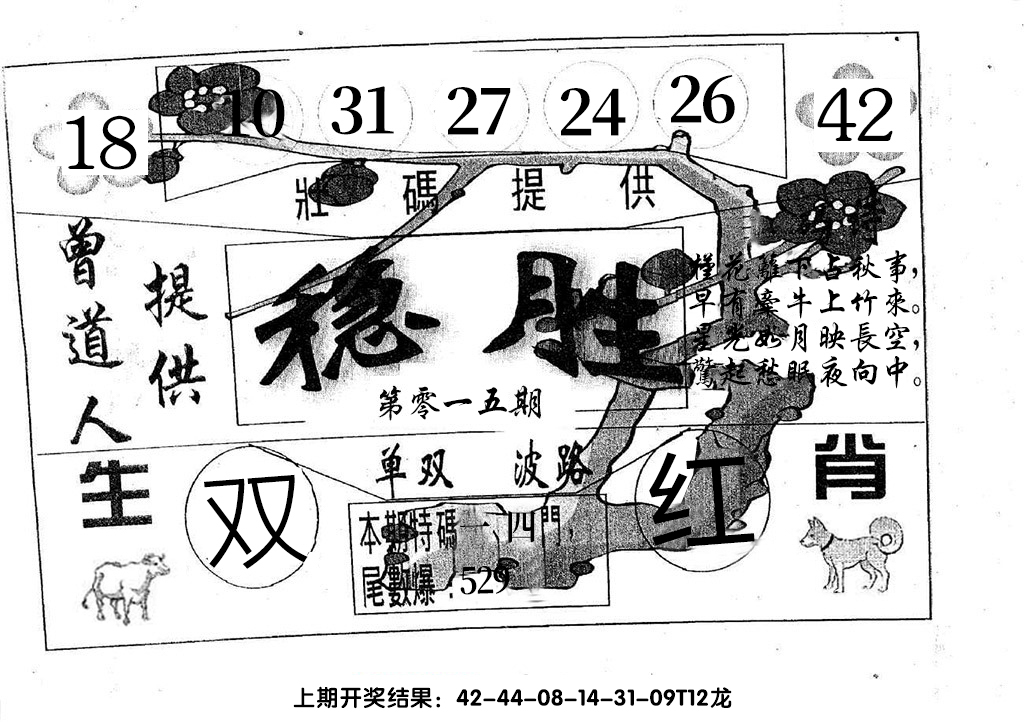 18 10 31 27 24 26 42
壯碼提供
曾道人
提供
稳胜
第零一五期
槿花籬下占秋事，
早有牽牛上竹來。
星光如月映長空，
驚起愁眠夜向中。
单双 波路
双
红
生
肖
本期特碼一、四門，
尾數爆：529
上期开奖结果：42-44-08-14-31-09T12龙